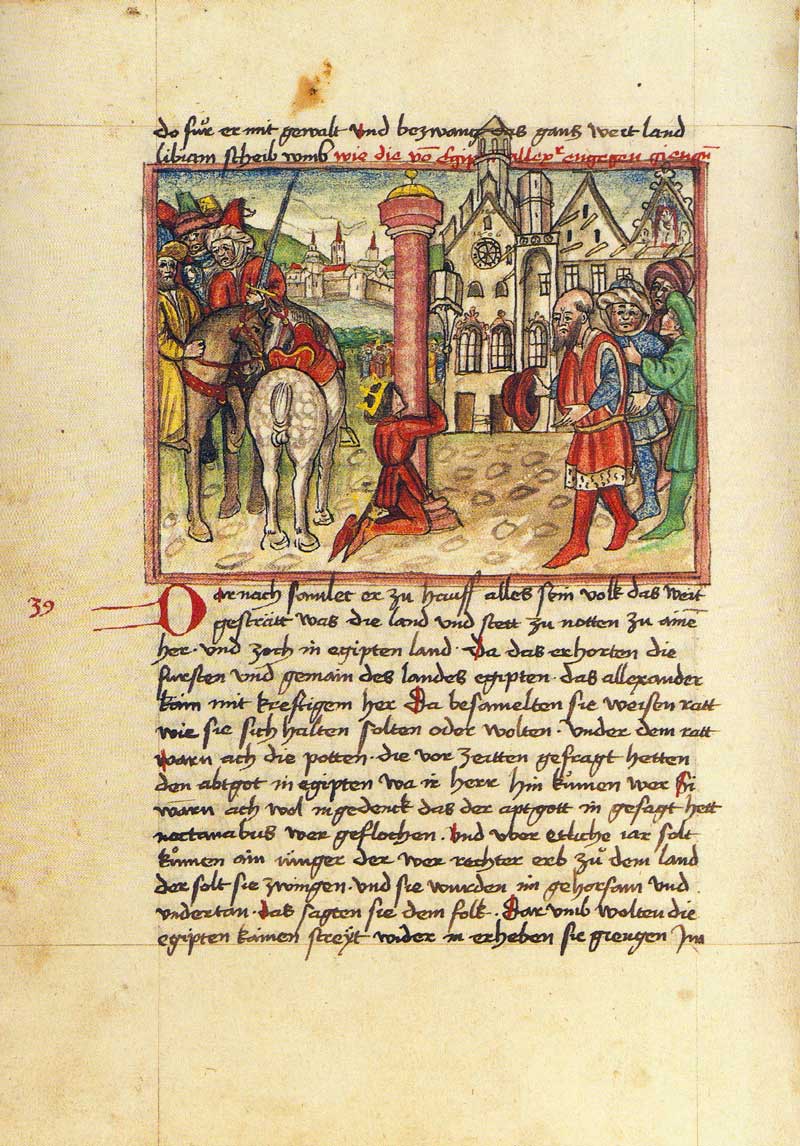 do fůr er mit gewalt Vnd bezwang das gantz weit land
libiam scheib vmb wie die võ Egip allexr engegen giengñ
39
Dar nach samlet er zu hauff alles sein volk das weit
gestrått was die land vnd stett zu notten zu ainē
her · vnd zoch in egipten land · Da das erhorten die
fursten vnd gemain des landes egipten · das allexander
kám mit kreftigem her Da besamelten sie weisen ratt
wie sie sich halten solten oder wolten · vnder dem ratt
warn ach die potten · die vor zeitten gefragt hetten
den abtgot in egipten wa ir herr hin kůmen wer Si
warn ach wol ingedenck das der aptgott in gesagt hett
noctanabus wer geflochen · Vnd vber etliche iar solt
kůmen ain iúnger der wer rechter erb zů dem land
der solt sie zwingen · vnd sie wurden im gehorsam vnd
vndertan · das sagten sie dem folk · Dar vmb wolten die
egipten kainen streÿt wider in erheben sie giengen Im